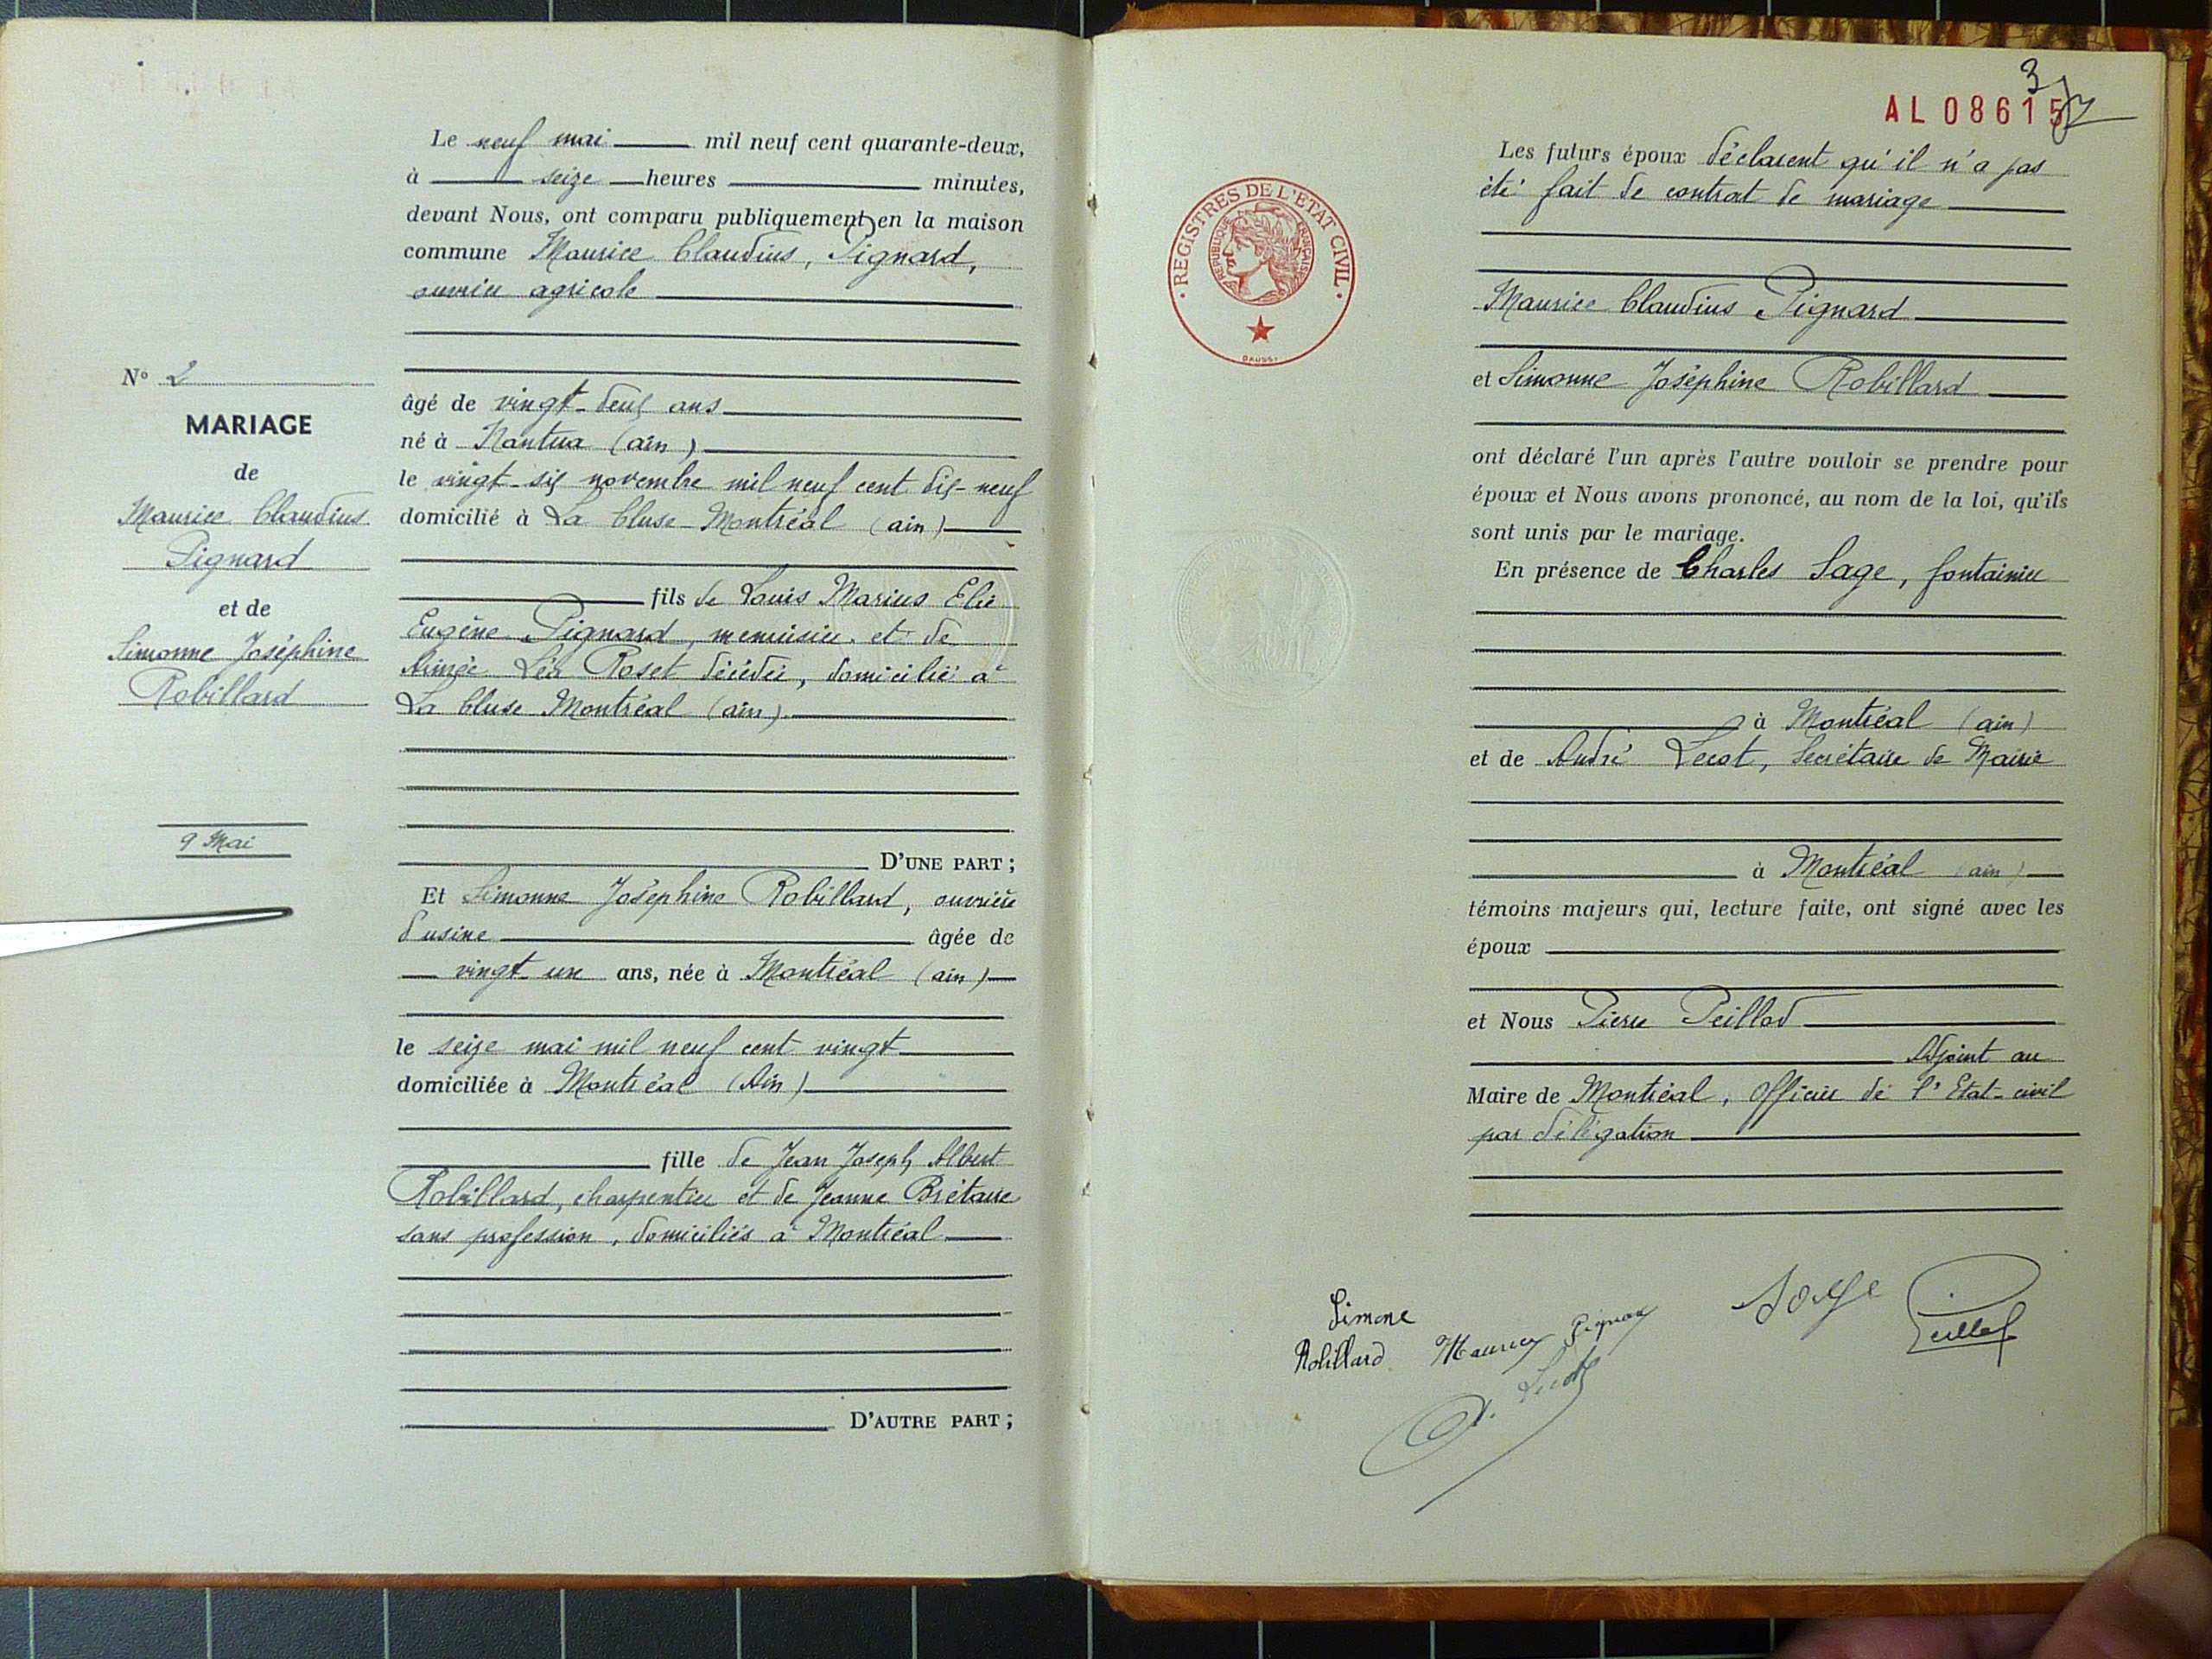 Le neuf mai mil neuf cent quarante-deux,
à seize heures minutes,
devant Nous, ont comparu publiquement en la maison
commune Maurice Claudius, Pignard,
ouvrier agricole
âgé de vingt-deux ans
né à Nantua (ain)
le vingt-six novembre mil neuf cent dix-neuf
domicilié à La Cluse-Montréal (ain)
fils de Louis Marius Elie
Eugène Pignard, menuisier et de
Aimée Léa Roset décédée, domicilié à
La Cluse Montréal (ain).
D'UNE PART ;
Et Simonne Joséphine Robillard, ouvrière
d'usine âgée de
vingt-un ans, née à Montréal (ain)
le seize mai mil neuf cent vingt
domiciliée à Montréal (Ain)
fille de Jean Joseph Albert
Robillard, charpentier et de Jeanne Brétaire
sans profession, domiciliés à Montréal
D'AUTRE PART ;
N° 2
MARIAGE
de
Maurice Claudius
Pignard
et de
Simonne Joséphine
Robillard
9 Mai
3
AL 08615
REGISTRES DE L'ETAT CIVIL
REPUBLIQUE FRANÇAISE
Les futurs époux déclarent qu'il n'a pas
été fait de contrat de mariage
Maurice Claudius Pignard
et Simonne Joséphine Robillard
ont déclaré l'un après l'autre vouloir se prendre pour
époux et Nous avons prononcé, au nom de la loi, qu'ils
sont unis par le mariage.
En présence de Charles Sage, fontainier
à Montréal (ain)
et de André Lecot, Secrétaire de Mairie
à Montréal (ain)
témoins majeurs qui, lecture faite, ont signé avec les
époux
et Nous Pierre Peillod
Adjoint au
Maire de Montréal, Officier de l'Etat-civil
par délégation
Simone
Robillard
Maurice Pignard
Sage
Peillod
A. Lecot